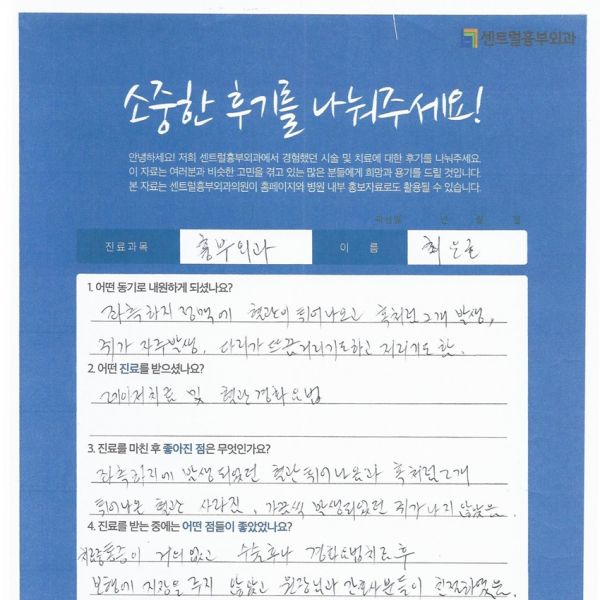 센트럴흉부외과
소중한 후기를 나눠주세요!
안녕하세요! 저희 센트럴흉부외과에서 경험했던 시술 및 치료에 대한 후기를 나눠주세요.
이 자료는 여러분과 비슷한 고민을 겪고 있는 많은 분들에게 희망과 용기를 드릴 것입니다.
본 자료는 센트럴흉부외과의원이 홈페이지와 병원 내부 홍보자료로도 활용될 수 있습니다.
작성일 년 월 일
진료과목 흉부외과 이 름 최
1. 어떤 동기로 내원하게 되셨나요?
좌측하지 정맥에 혈관이 튀어나오고 혹처럼 2개 발생,
쥐가 자주발생, 다리가 뜨끈거리기도하고 저리기도 함.
2. 어떤 진료를 받으셨나요?
레이저치료 및 혈관경화요법
3. 진료를 마친 후 좋아진 점은 무엇인가요?
좌측하지에 발생되었던 혈관 튀어나옴과 혹처럼 2개
튀어나온 혈관 사라짐, 가끔씩 발생되었던 쥐가 나지 않았음.
4. 진료를 받는 중에는 어떤 점들이 좋았었나요?
치료중 통증이 거의 없고 수술후나 경화요법치료 후
보행에 지장을 주지 않았고 원장님과 간호사분들이 친절하였음.